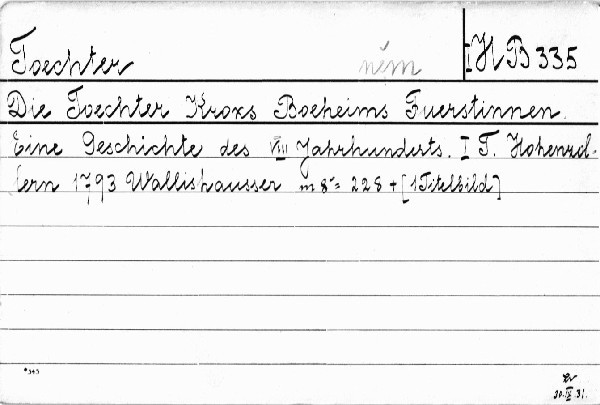 Toechter něm I H B 335
Die Toechter Kroks Boeheims Fuerstinnen.
Eine Geschichte des VIII Jahrhunderts. I T. Hohenzol-
lern 1793 Wallishausser m 8° 228 + [1 Titelbild]
*343
20.IV.31.